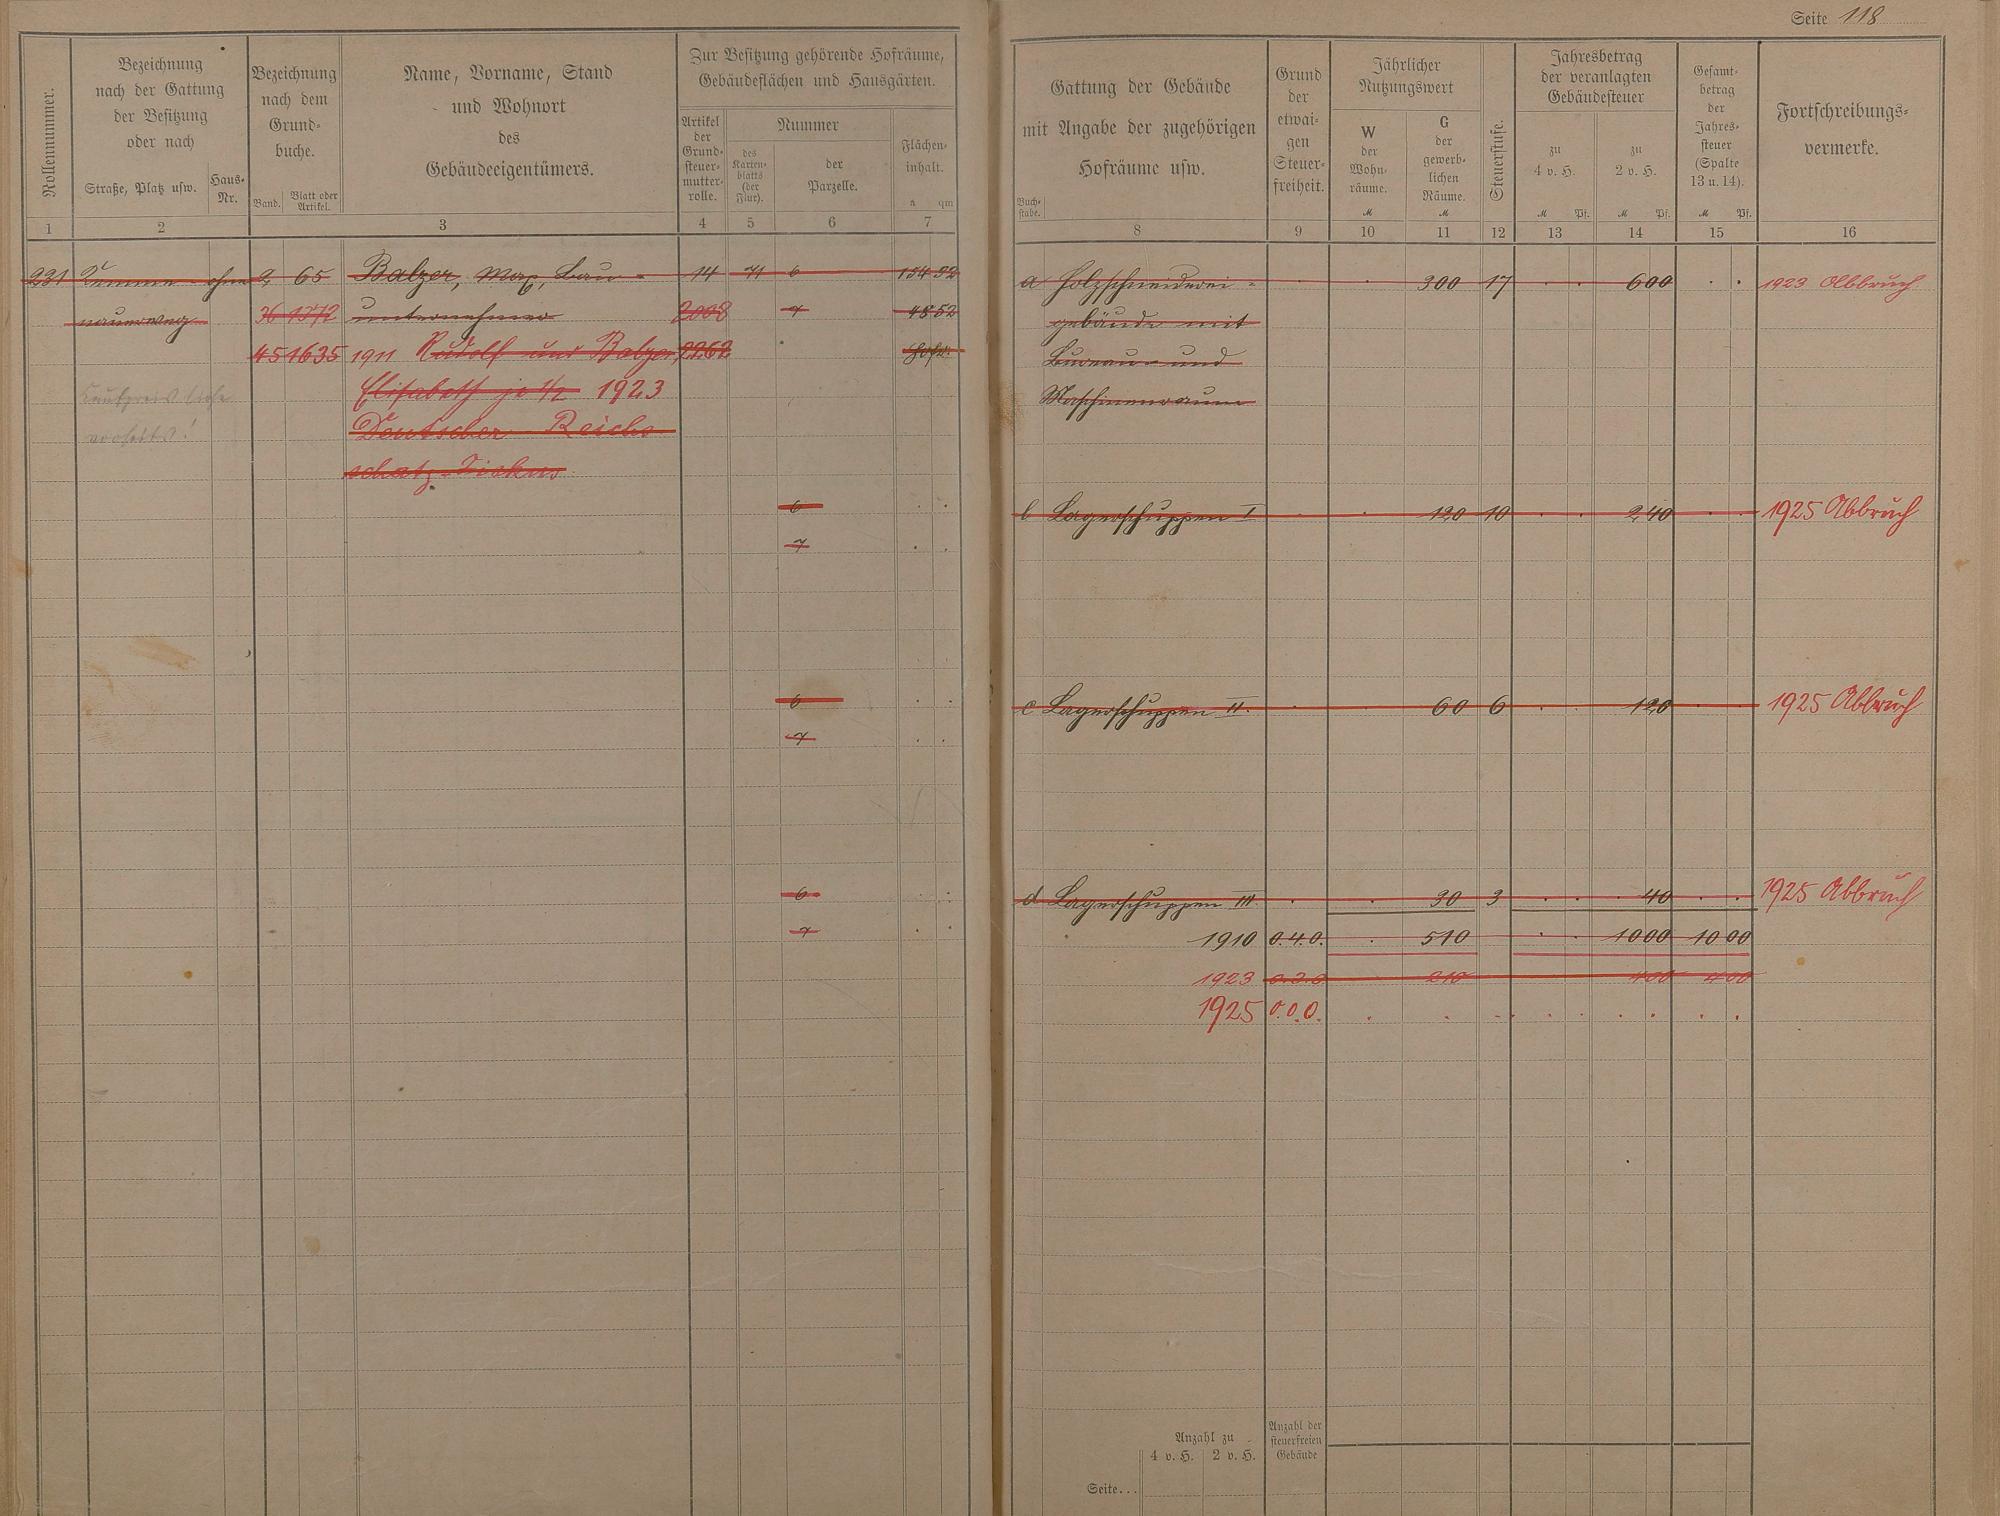 Seite 118
Rollennummer.
Bezeichnung
nach der Gattung
der Besitzung
oder nach
Straße, Platz usw.
Haus-
Nr.
Bezeichnung
nach dem
Grund-
buche.
Band.
Blatt oder
Artikel.
Name, Vorname, Stand
und Wohnort
des
Gebäudeeigentümers.
Zur Besitzung gehörende Hofräume,
Gebäudeflächen und Hausgärten.
Artikel
der
Grund-
steuer-
mutter-
rolle.
Nummer
des
Karten-
blatts
(der
Flur).
der
Parzelle.
Flächen-
inhalt.
a qm
1 2 3 4 5 6 7
231 ohne 2 65 Balzer, Max, Bau- 14 71 6 154 92
nauerweg 36 1372 unternehmer 2008 7 48 52
45 1635 1911 Rudolf und Balzer, 2262 Hofr.
Elisabeth je 1/2 1923
Deutscher Reichs
schatz-Fiskus
6
7
6
7
6
7
Gattung der Gebäude
mit Angabe der zugehörigen
Hofräume usw.
Buch-
stabe.
Grund
der
etwai-
gen
Steuer-
freiheit.
Jährlicher
Nutzungswert
W
der
Wohn-
räume.
M
G
der
gewerb-
lichen
Räume.
M
Steuerstufe.
Jahresbetrag
der veranlagten
Gebäudesteuer
zu
4 v. H.
M Pf.
zu
2 v. H.
M Pf.
Gesamt-
betrag
der
Jahres-
steuer
(Spalte
13 u. 14).
M Pf.
Fortschreibungs-
vermerke.
8 9 10 11 12 13 14 15 16
a Holzschneiderei- 300 17 6 00 1923 Abbruch
gebäude mit
Bureau- und
Maschinenraum
b Lagerschuppen I 120 10 2 40 1925 Abbruch
c Lagerschuppen II. 60 6 1 20 1925 Abbruch
d Lagerschuppen III. 30 3 40 1925 Abbruch
1910 0.4.0. 510 10 00 10 00
1923 0.3.0 210 4 00 4 00
1925 0.0.0.
Anzahl zu
4 v. H. 2 v. H.
Anzahl der
steuerfreien
Gebäude
Seite...